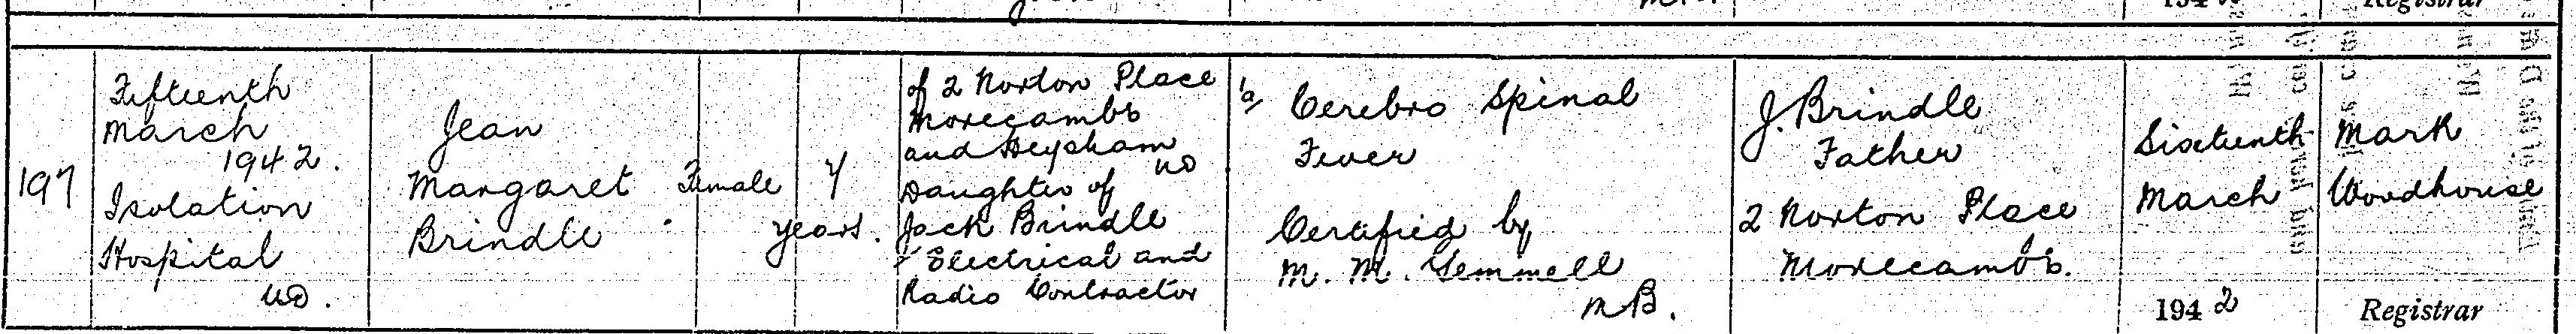 197
Fifteenth
March
1942.
Isolation
Hospital
UD.
Jean
Margaret
Brindle
Female
7
years.
of 2 Norton Place
Morecambe
and Heysham
UD
Daughter of
Jack Brindle
Electrical and
Radio Contractor
1a/ Cerebro Spinal
Fever
Certified by
M. M. Gemmell
M.B.
J. Brindle
Father
2 Norton Place
Morecambe.
Sixteenth
March
1942
Mark
Woodhouse
Registrar